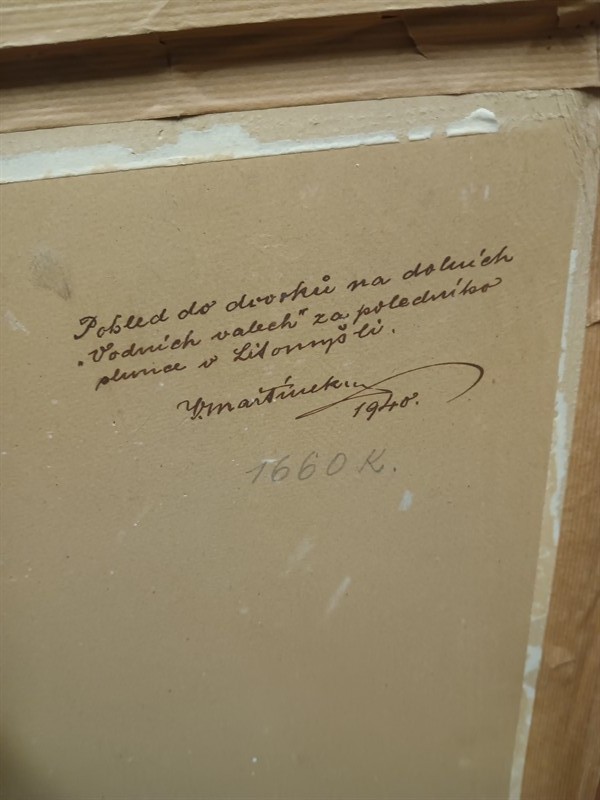 Pohled do dvorků na dolních
„Vodních valech“ za poledního
slunce v Litomyšli.
V. Martínek
1940.
1660 K.